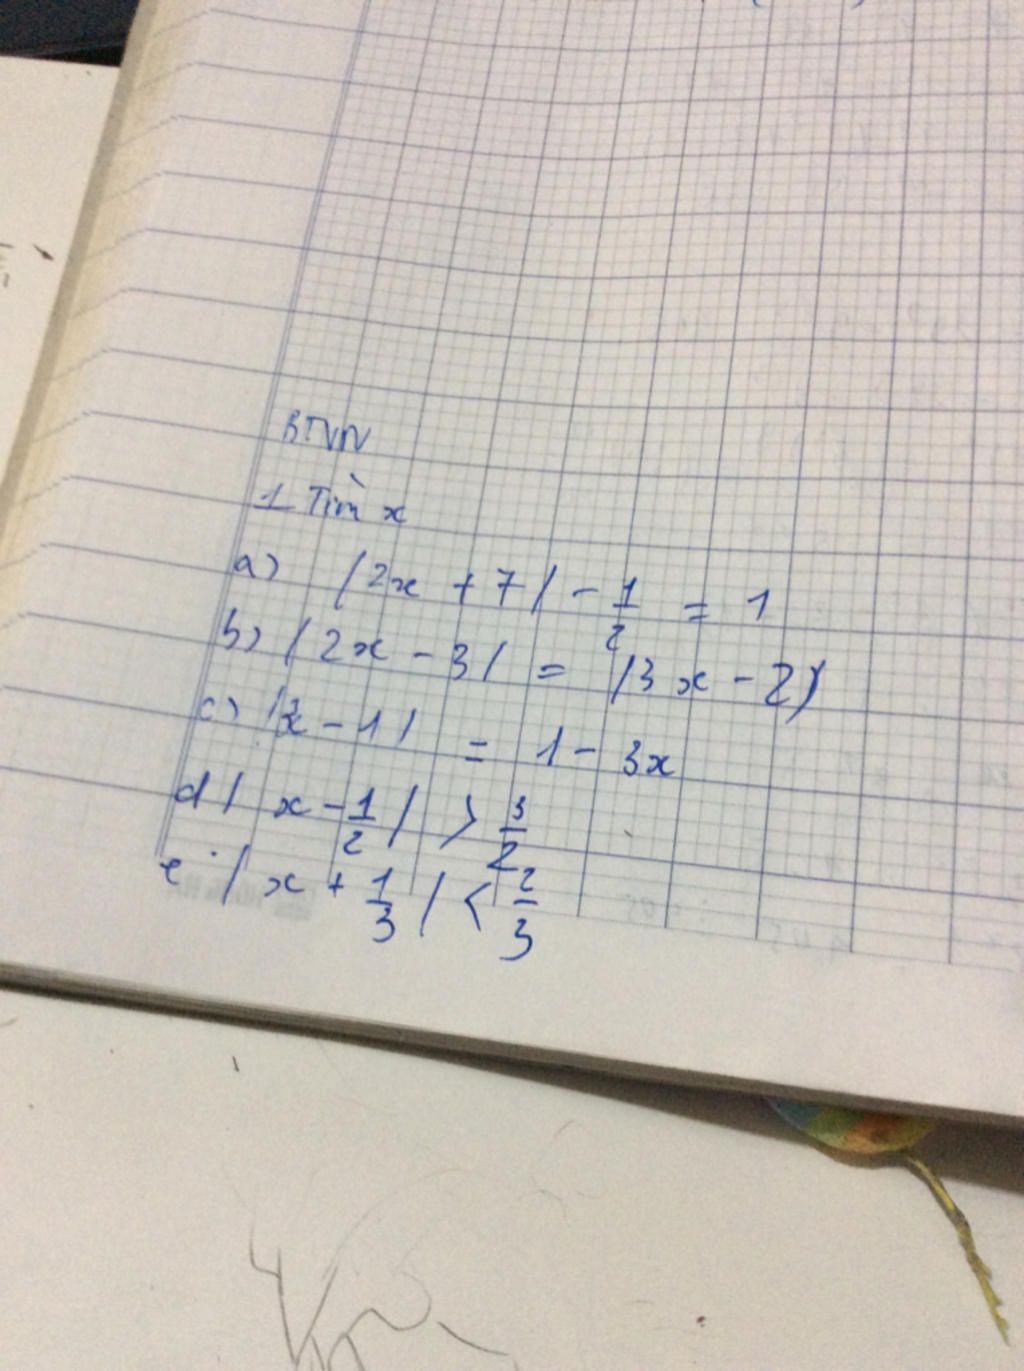 BTVN
1 Tìm x
a) |2x + 7| - 1/2 = 1
b) |2x - 3| = |3x - 2|
c) |3x - 1| = 1 - 3x
d | x - 1/2 | > 3/2
e | x + 1/3 | < 2/3